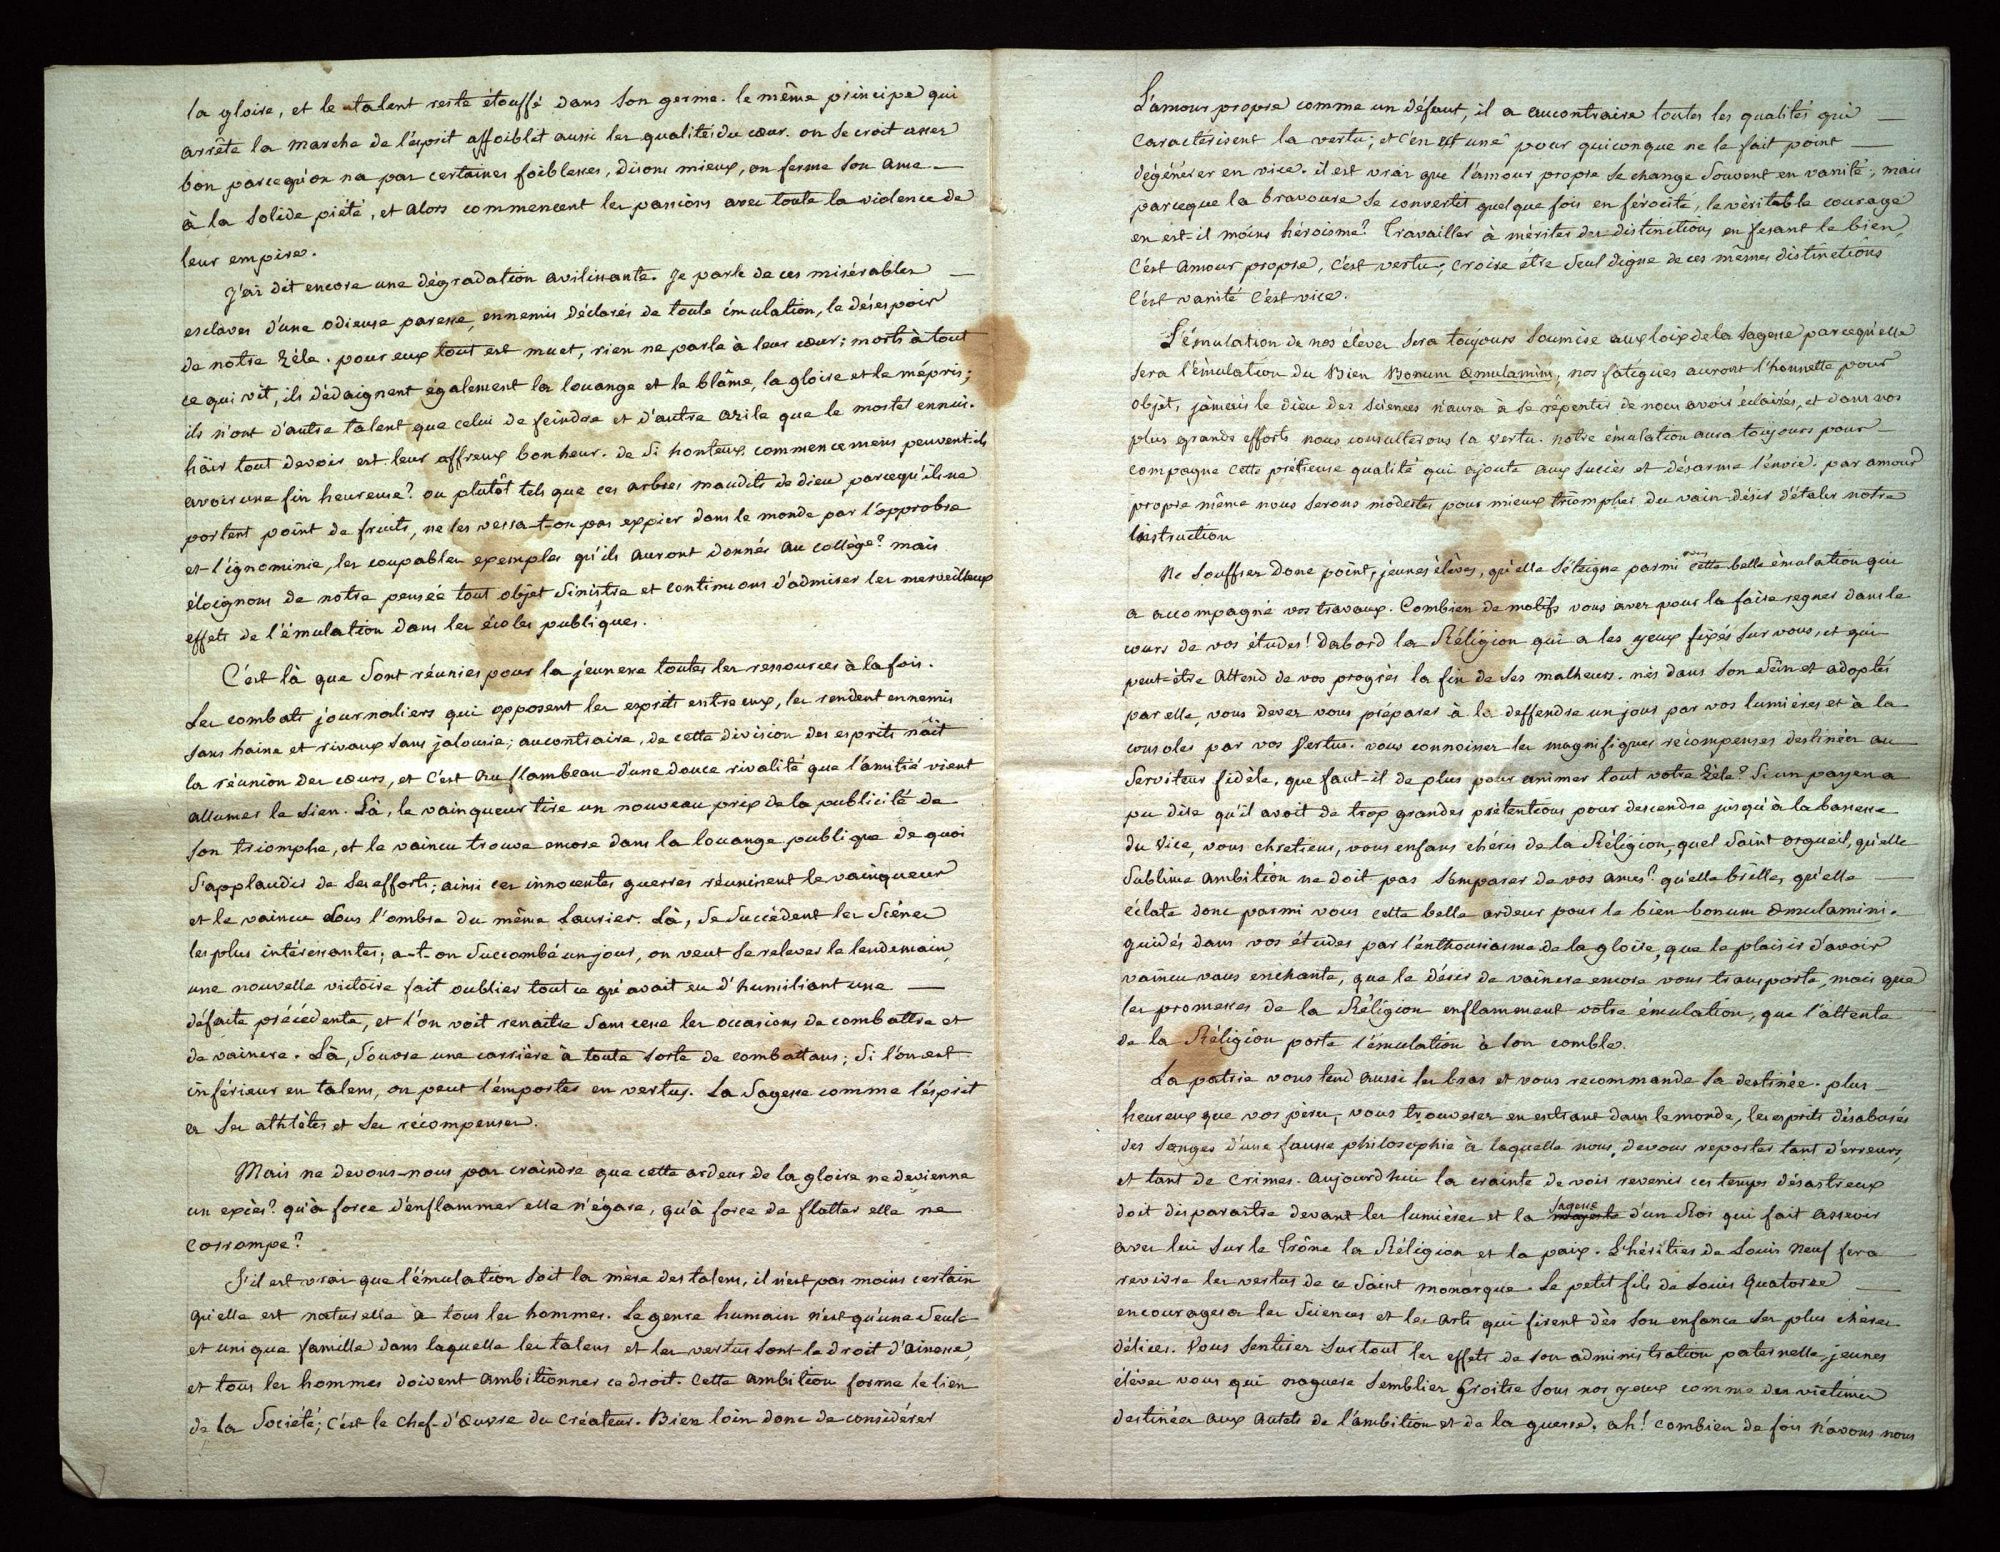 la gloire, et le talent reste étouffé dans son germe. le même principe qui
arrête la marche de l'ésprit affoiblit aussi les qualités du cœur. on se croit assez
bon parcequ'on na pas certaines foiblesses, disons mieux, on ferme son ame
à la solide piété, et alors commencent les passions avec toute la violence de
leur empire.
J'ai dit encore une dégradation avilissante. Je parle de ces misérables
esclaves d'une odieuse paresse, ennemis déclarés de toute émulation, le désespoir
de notre zéle. pour eux tout est muet, rien ne parle à leur cœur; morts à tout
ce qui vit, ils dédaignent également la louange et le blâme, la gloire et le mépris;
ils n'ont d'autre talent que celui de feindre et d'autre azile que le mortel ennui.
häir tout devoir est leur affreux bonheur. de si honteux commencemens peuvent-ils
avoir une fin heureuse? ou plutôt tels que ces arbres maudits de dieu parcequ'ils ne
portent point de fruits, ne les verra-t-on pas expier dans le monde par l'opprobre
et l'ignominie, les coupables exemples qu'ils auront donnés au collège? mais
éloignons de notre pensée tout objèt sinistre et continuons d'admirer les merveilleux
effets de l'émulation dans les écoles publiques.
C'est là que sont réunies pour la jeunesse toutes les ressources à la fois.
Les combats journaliers qui opposent les esprits entre eux, les rendent ennemis
sans haine et rivaux sans jalousie; aucontraire, de cette division des esprits nâit
la réunion des cœurs, et c'est au flambeau d'une douce rivalité que l'amitié vient
allumer le sien. Là, le vainqueur tire un nouveau prix de la publicité de
son triomphe, et le vaincu trouve encore dans la louange publique de quoi
s'applaudir de ses efforts; ainsi ces innocentes guerres réunissent le vainqueur
et le vaincu sous l'ombre du même Laurier. Là, se succèdent les scénes
les plus intéressantes; a-t-on succombé un jour, on veut se relever le lendemain,
une nouvelle victoire fait oublier tout ce qu'avait eu d'humiliant une
défaite précédente, et l'on voit renaitre sans cesse les occasions de combattre et
de vaincre. Là, s'ouvre une carrière à toute sorte de combattans; si l'on est
inférieur en talens, on peut l'emporter en vertus. La sagesse comme l'ésprit
a ses athlètes et ses récompenses.
Mais ne devons-nous pas craindre que cette ardeur de la gloire ne devienne
un excès? qu'à force d'enflammer elle n'égare, qu'à force de flatter elle ne
corrompe?
S'il est vrai que l'émulation soit la mère des talens, il n'est pas moins certain
qu'elle est naturelle à tous les hommes. Le genre humain n'est qu'une seule
et unique famille dans laquelle les talens et les vertus sont le droit d'ainesse,
et tous les hommes doivent ambitionner ce droit. Cette ambition forme le lien
de la société; c'est le chef d'œuvre du créateur. Bien loin donc de considérer
L'amour propre comme un défaut, il a aucontraire toutes les qualités qui
caractérisent la vertu; et c'en est une pour quiconque ne le fait point
dégénérer en vice. il est vrai que l'amour propre se change souvent en vanité; mais
parceque la bravoure se convertit quelque fois en férocité, le véritable courage
en est-il moins héroisme? Travailler à mériter des distinctions en fesant le bien,
C'est amour propre, c'est vertu; croire être seul digne de ces mêmes distinctions
C'est vanité c'est vice.
L'émulation de nos élèves sera toujours soumise aux loix de la sagesse parcequ'elle
sera l'émulation du Bien Bonum œmulamini, nos fatigues auront l'honnette pour
objèt, jamais le dieu des sciences n'aura à se répentir de nous avoir éclairés, et dans nos
plus grands efforts nous consulterons la vertu. notre émulation aura toujours pour
compagne cette prétieuse qualité qui ajoute aux succès et désarme l'envie. par amour
propre même nous serons modestes pour mieux triompher du vain désir d'étaler notre
instruction
Ne souffrez donc point, jeunes élèves, qu'elle s'éteigne parmi vous cette belle émulation qui
a accompagné vos travaux. Combien de motifs vous avez pour la faire regner dans le
cours de vos études! dabord la Réligion qui a les yeux fixés sur vous, et qui
peut-être attend de vos progrès la fin de ses malheurs. nés dans son sein et adoptés
par elle, vous devez vous préparer à la deffendre un jour par vos lumières et à la
consoler par vos vertus. vous connoissez les magnifiques récompenses destinées au
serviteur fidèle, que faut-il de plus pour animer tout votre zéle? Si un payen a
pu dire qu'il avoit de trop grandes prétentions pour descendre jusqu'à la bassesse
du vice, vous chretiens, vous enfans chéris de la Réligion, quel saint orgueil, qu'elle
sublime ambition ne doit pas s'emparer de vos ames? qu'elle brille, qu'elle
éclate donc parmi vous cette belle ardeur pour le bien bonum œmulamini.
guidés dans vos études par l'enthousiasme de la gloire, que le plaisir d'avoir
vaincu vous enchante, que le désir de vaincre encore vous transporte, mais que
les promesses de la Réligion enflamment votre émulation, que l'attente
de la Réligion porte l'émulation à son comble.
La patrie vous tend aussi les bras et vous recommande sa destinée. plus
heureux que vos pères, vous trouverez en entrant dans le monde, les esprits désabusés
des songes d'une fausse philosophie à laquelle nous devons reporter tant d'erreurs,
et tant de crimes. aujourd'hui la crainte de voir revenir ces temps désastreux
doit disparaitre devant les lumières et la sagesse d'un Roi qui fait asseoir
avec lui sur le Trône la Réligion et la paix. L'héritier de Louis neuf fera
revivre les vertus de ce saint monarque. Le petit fils de Louis Quatorze
encouragera les sciences et les arts qui firent dès son enfance ses plus chères
délices. Vous sentirez surtout les effets de son administration paternelle, jeunes
élèves vous qui naguere sembliez croitre sous nos yeux comme des victimes
destinées aux autels de l'ambition et de la guerre. ah! combien de fois n'avons nous